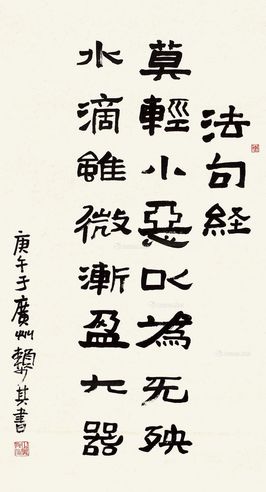 法句経
莫輕小惡以為无殃
水滴雖微漸盈大器
庚午于廣州賴少其書